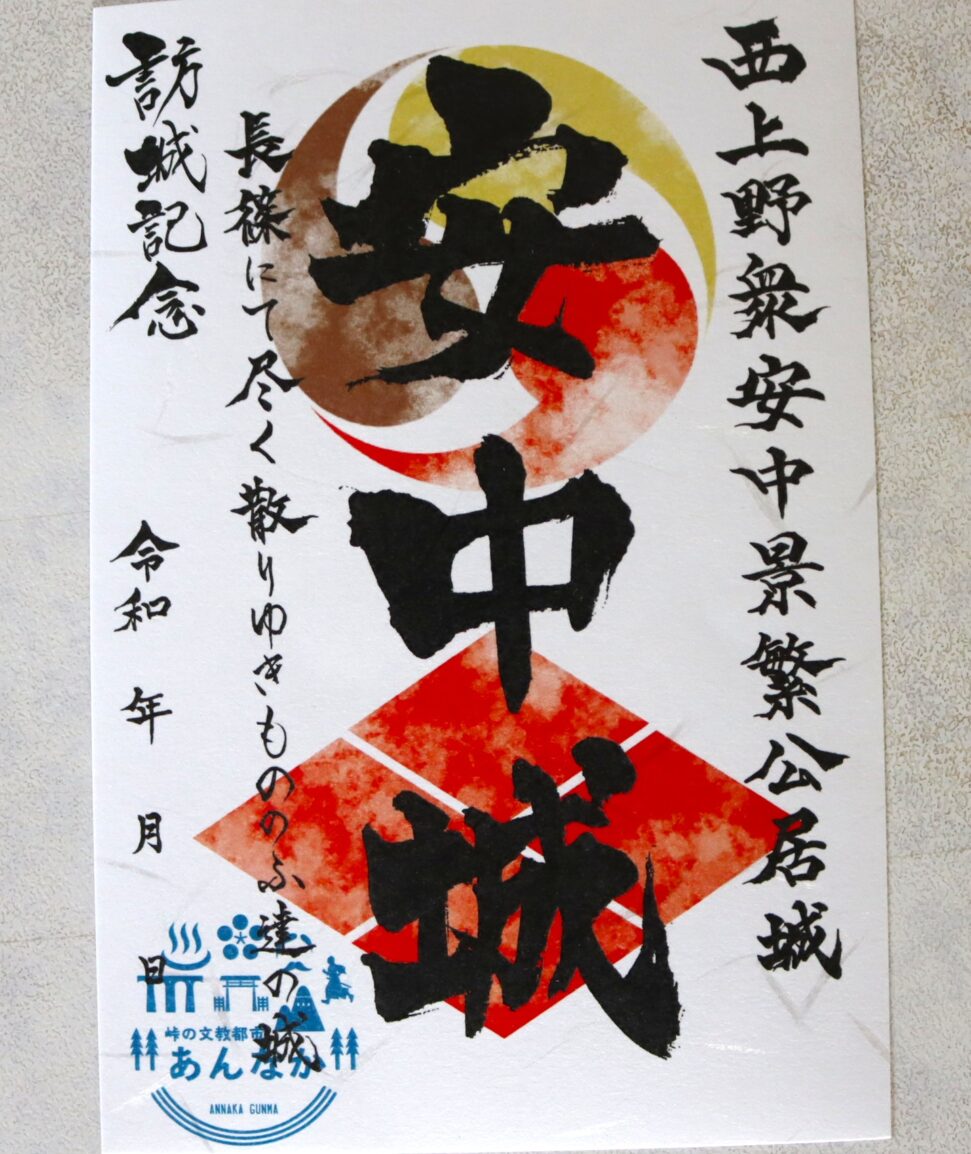 西上野衆安中景繁公居城
安中城
長篠にて尽く散りゆきもののふ達の城
訪城記念
令和 年 月 日
峠の文教都市
あんなか
ANNAKA GUNMA